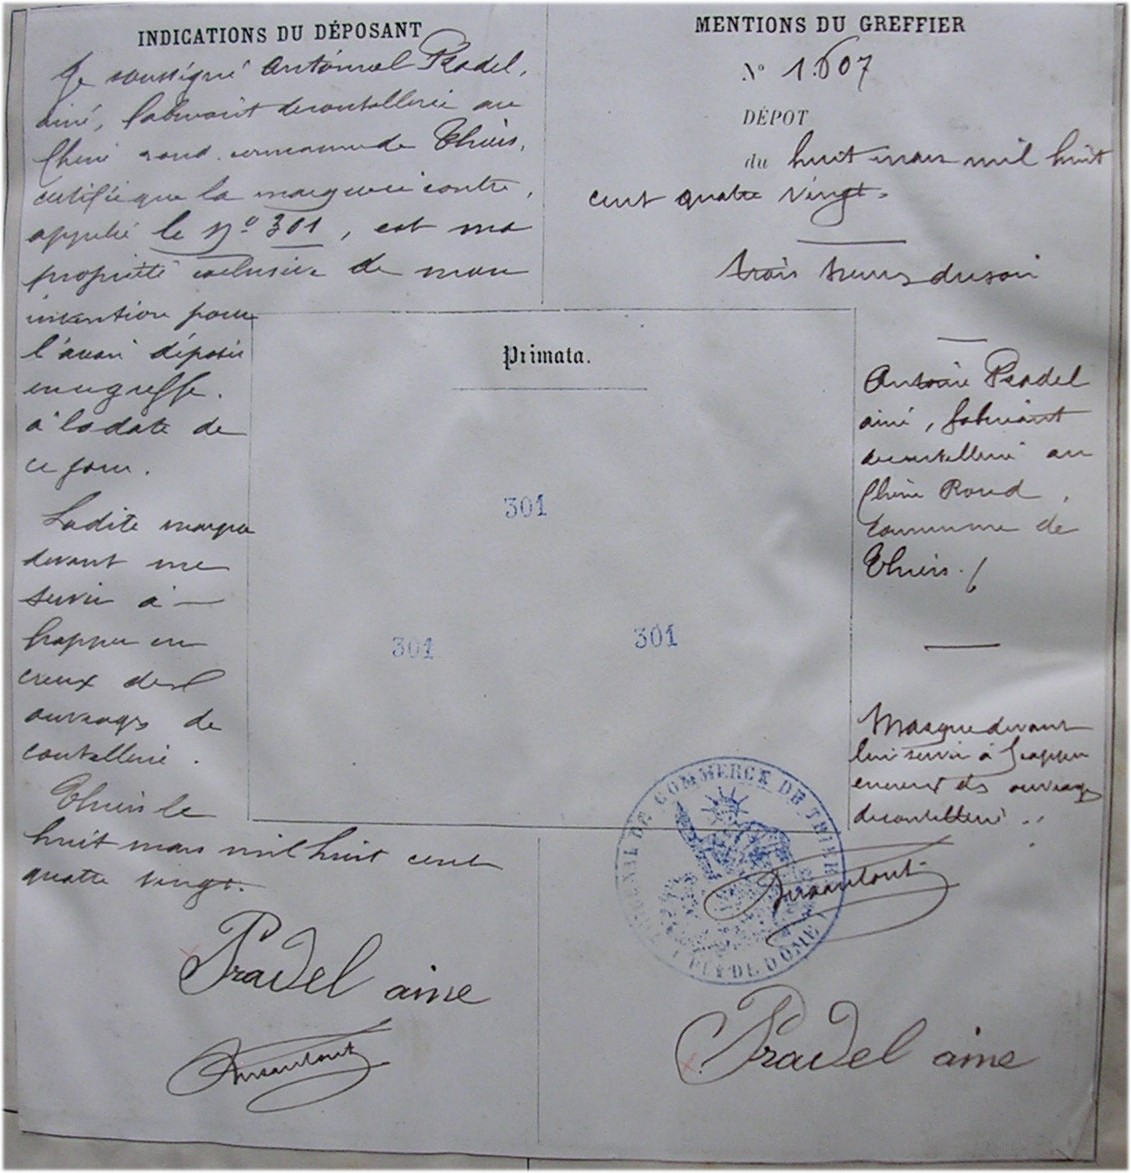 INDICATIONS DU DÉPOSANT
Je soussigné Antoine Pradel,
ainé, fabricant de coutellerie au
Chêne rond commune de Thiers,
certifie que la marque ci contre,
appelée le No 301, est ma
propriété exclusive de mon
invention pour
l'avoir déposée
en ce greffe.
à la date de
ce jour.
Ladite marque
devant me
servir à
frapper en
creux des
ouvrages de
coutellerie.
Thiers le
huit mars mil huit cent
quatre vingt.
Pradel aine
MENTIONS DU GREFFIER
No 1.607
DÉPOT
du huit mars mil huit
cent quatre vingt.
trois heures du soir
Primata.
301
301 301
Antoine Pradel
ainé, fabricant
de coutellerie au
Chêne Rond,
Commune de
Thiers.
Marque devant
lui servir à frapper
en creux des ouvrages
de coutellerie.
TRIBUNAL DE COMMERCE DE THIERS
PUY DE DOME
Pradel aine